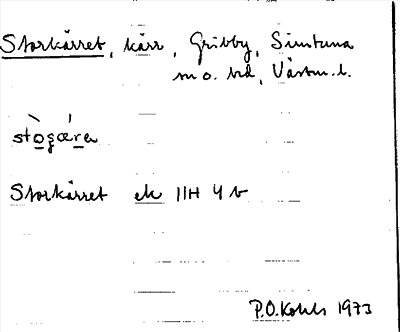 Storkärret, kärr, Gribby, Simtuna
sn o. hd, Västm. l.
stògǽra
Storkärret ek 11H 4 b
P.O. Kohls 1973